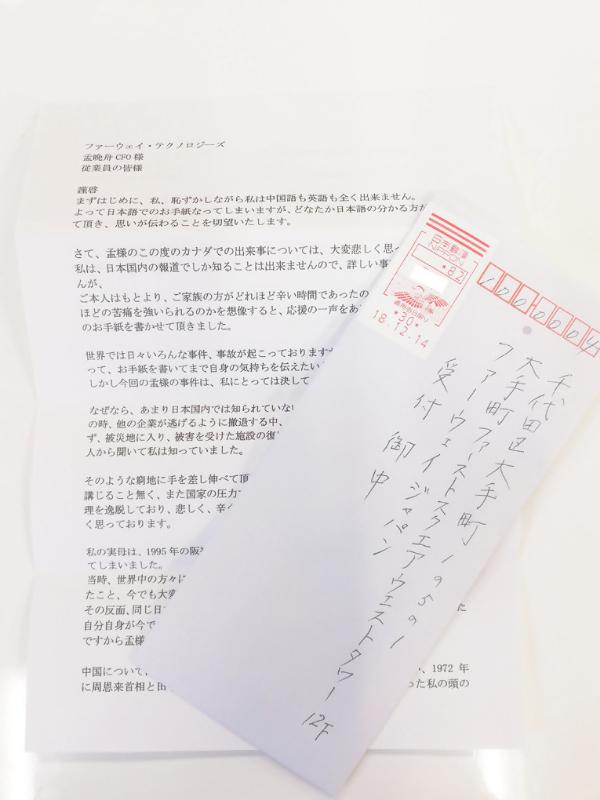 ファーウェイ・テクノロジーズ
孟晩舟 CFO 様
従業員の皆様
謹啓
まずはじめに、私、恥ずかしながら私は中国語も英語も全く出来ません。
よって日本語でのお手紙なってしまいますが、どなたか日本語の分かる方が
て頂き、思いが伝わることを切望いたします。
さて、孟様のこの度のカナダでの出来事については、大変悲しく思っ
私は、日本国内の報道でしか知ることは出来ませんので、詳しい事
んが、
ご本人はもとより、ご家族の方がどれほど辛い時間であったの
ほどの苦痛を強いられるのかを想像すると、応援の一声をあ
のお手紙を書かせて頂きました。
世界では日々いろんな事件、事故が起こっておりますが
って、お手紙を書いてまで自身の気持ちを伝えたい
しかし今回の孟様の事件は、私にとっては決して
なぜなら、あまり日本国内では知られていない
の時、他の企業が逃げるように撤退する中、
ず、被災地に入り、被害を受けた施設の復
人から聞いて私は知っていました。
そのような窮地に手を差し伸べて頂
講じること無く、また国家の圧力で
理を逸脱しており、悲しく、辛
く思っております。
私の実母は、1995 年の阪
てしまいました。
当時、世界中の方々に
たこと、今でも大変
その反面、同じ日
自分自身が今で
ですから孟様
中国について、
、1972 年
に周恩来首相と田
った私の頭の
日本郵便
NIPPON
*82
*30*
18.12.14
1000004
千代田区大手町1-5-1
大手町ファーストスクエアウェストタワー12F
ファーウェイジャパン
受付 御中